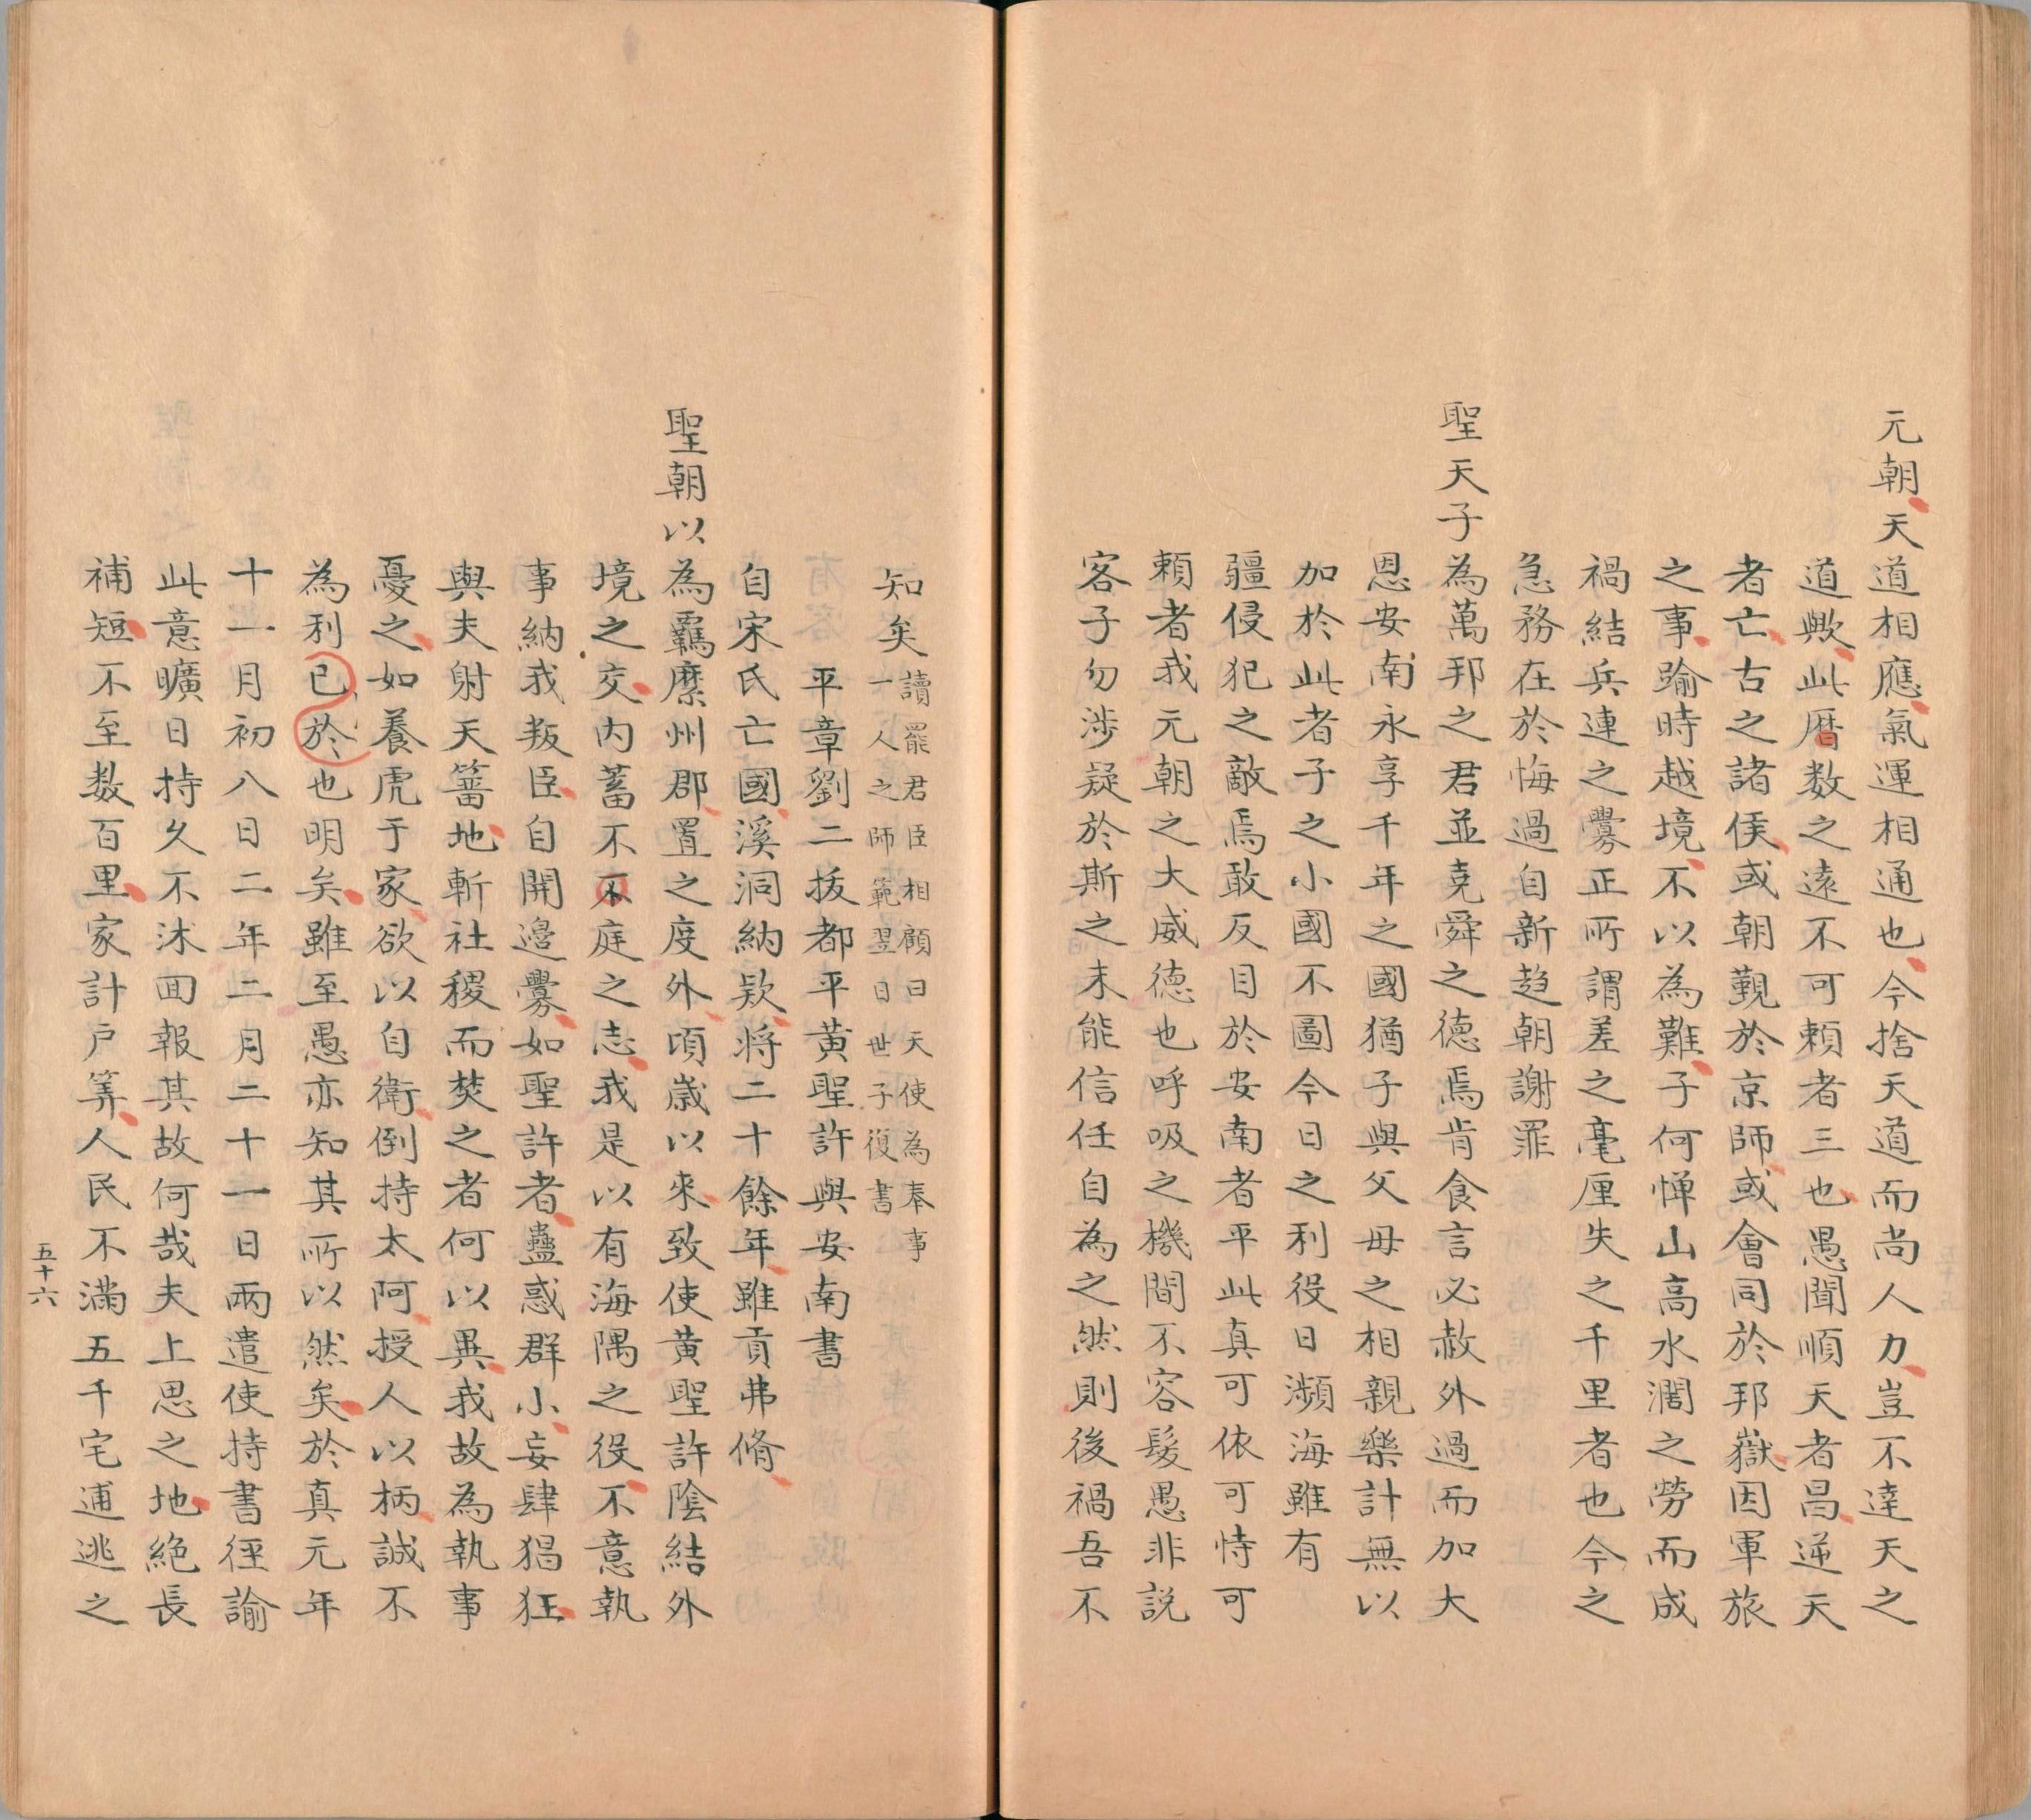 元朝天道相應氣運相通也今捨天道而尚人力豈不達天之
道歟此曆数之遠不可頼者三也愚聞順天者昌逆天
者亡古之諸侯或朝覲於京師或會同於邦嶽因軍旅
之事踰時越境不以為難子何憚山高水濶之勞而成
禍結兵連之釁正所謂差之毫厘失之千里者也今之
急務在於悔過自新趋朝謝罪
聖天子為萬邦之君並尭舜之德焉肯食言必赦外過而加大
恩安南永享千年之國猶子與父母之相親樂計無以
加於此者子之小國不圖今日之利役日瀕海雖有
疆侵犯之敵焉敢反目於安南者乎此真可依可恃可
頼者我元朝之大威德也呼吸之機間不容髮愚非説
客子勿渉疑於斯之未能信任自為之然則後禍吾不
知矣讀罷君臣相顧曰天使為奉事
一人之師範翌日世子復書
平章劉二拔都平黄聖許與安南書
自宋氏亡國溪洞納欵将二十餘年雖貢弗脩
聖朝以為羈縻州郡置之度外頃歳以來致使黄聖許陰結外
境之交内蓄不不庭之志我是以有海隅之役不意執
事納我叛臣自開邉釁如聖許者蠱惑群小妄肆猖狂
與夫射天笞地斬社稷而焚之者何以異我故為執事
憂之如養虎于家欲以自衛倒持太阿授人以柄誠不
為利已於也明矣雖至愚亦知其所以然矣於真元年
十一月初八日二年二月二十一日兩遣使持書徑諭
此意曠日持久不沐囬報其故何哉夫上思之地絶長
補短不至数百里家計戸筭人民不滿五千宅逋逃之
五十六